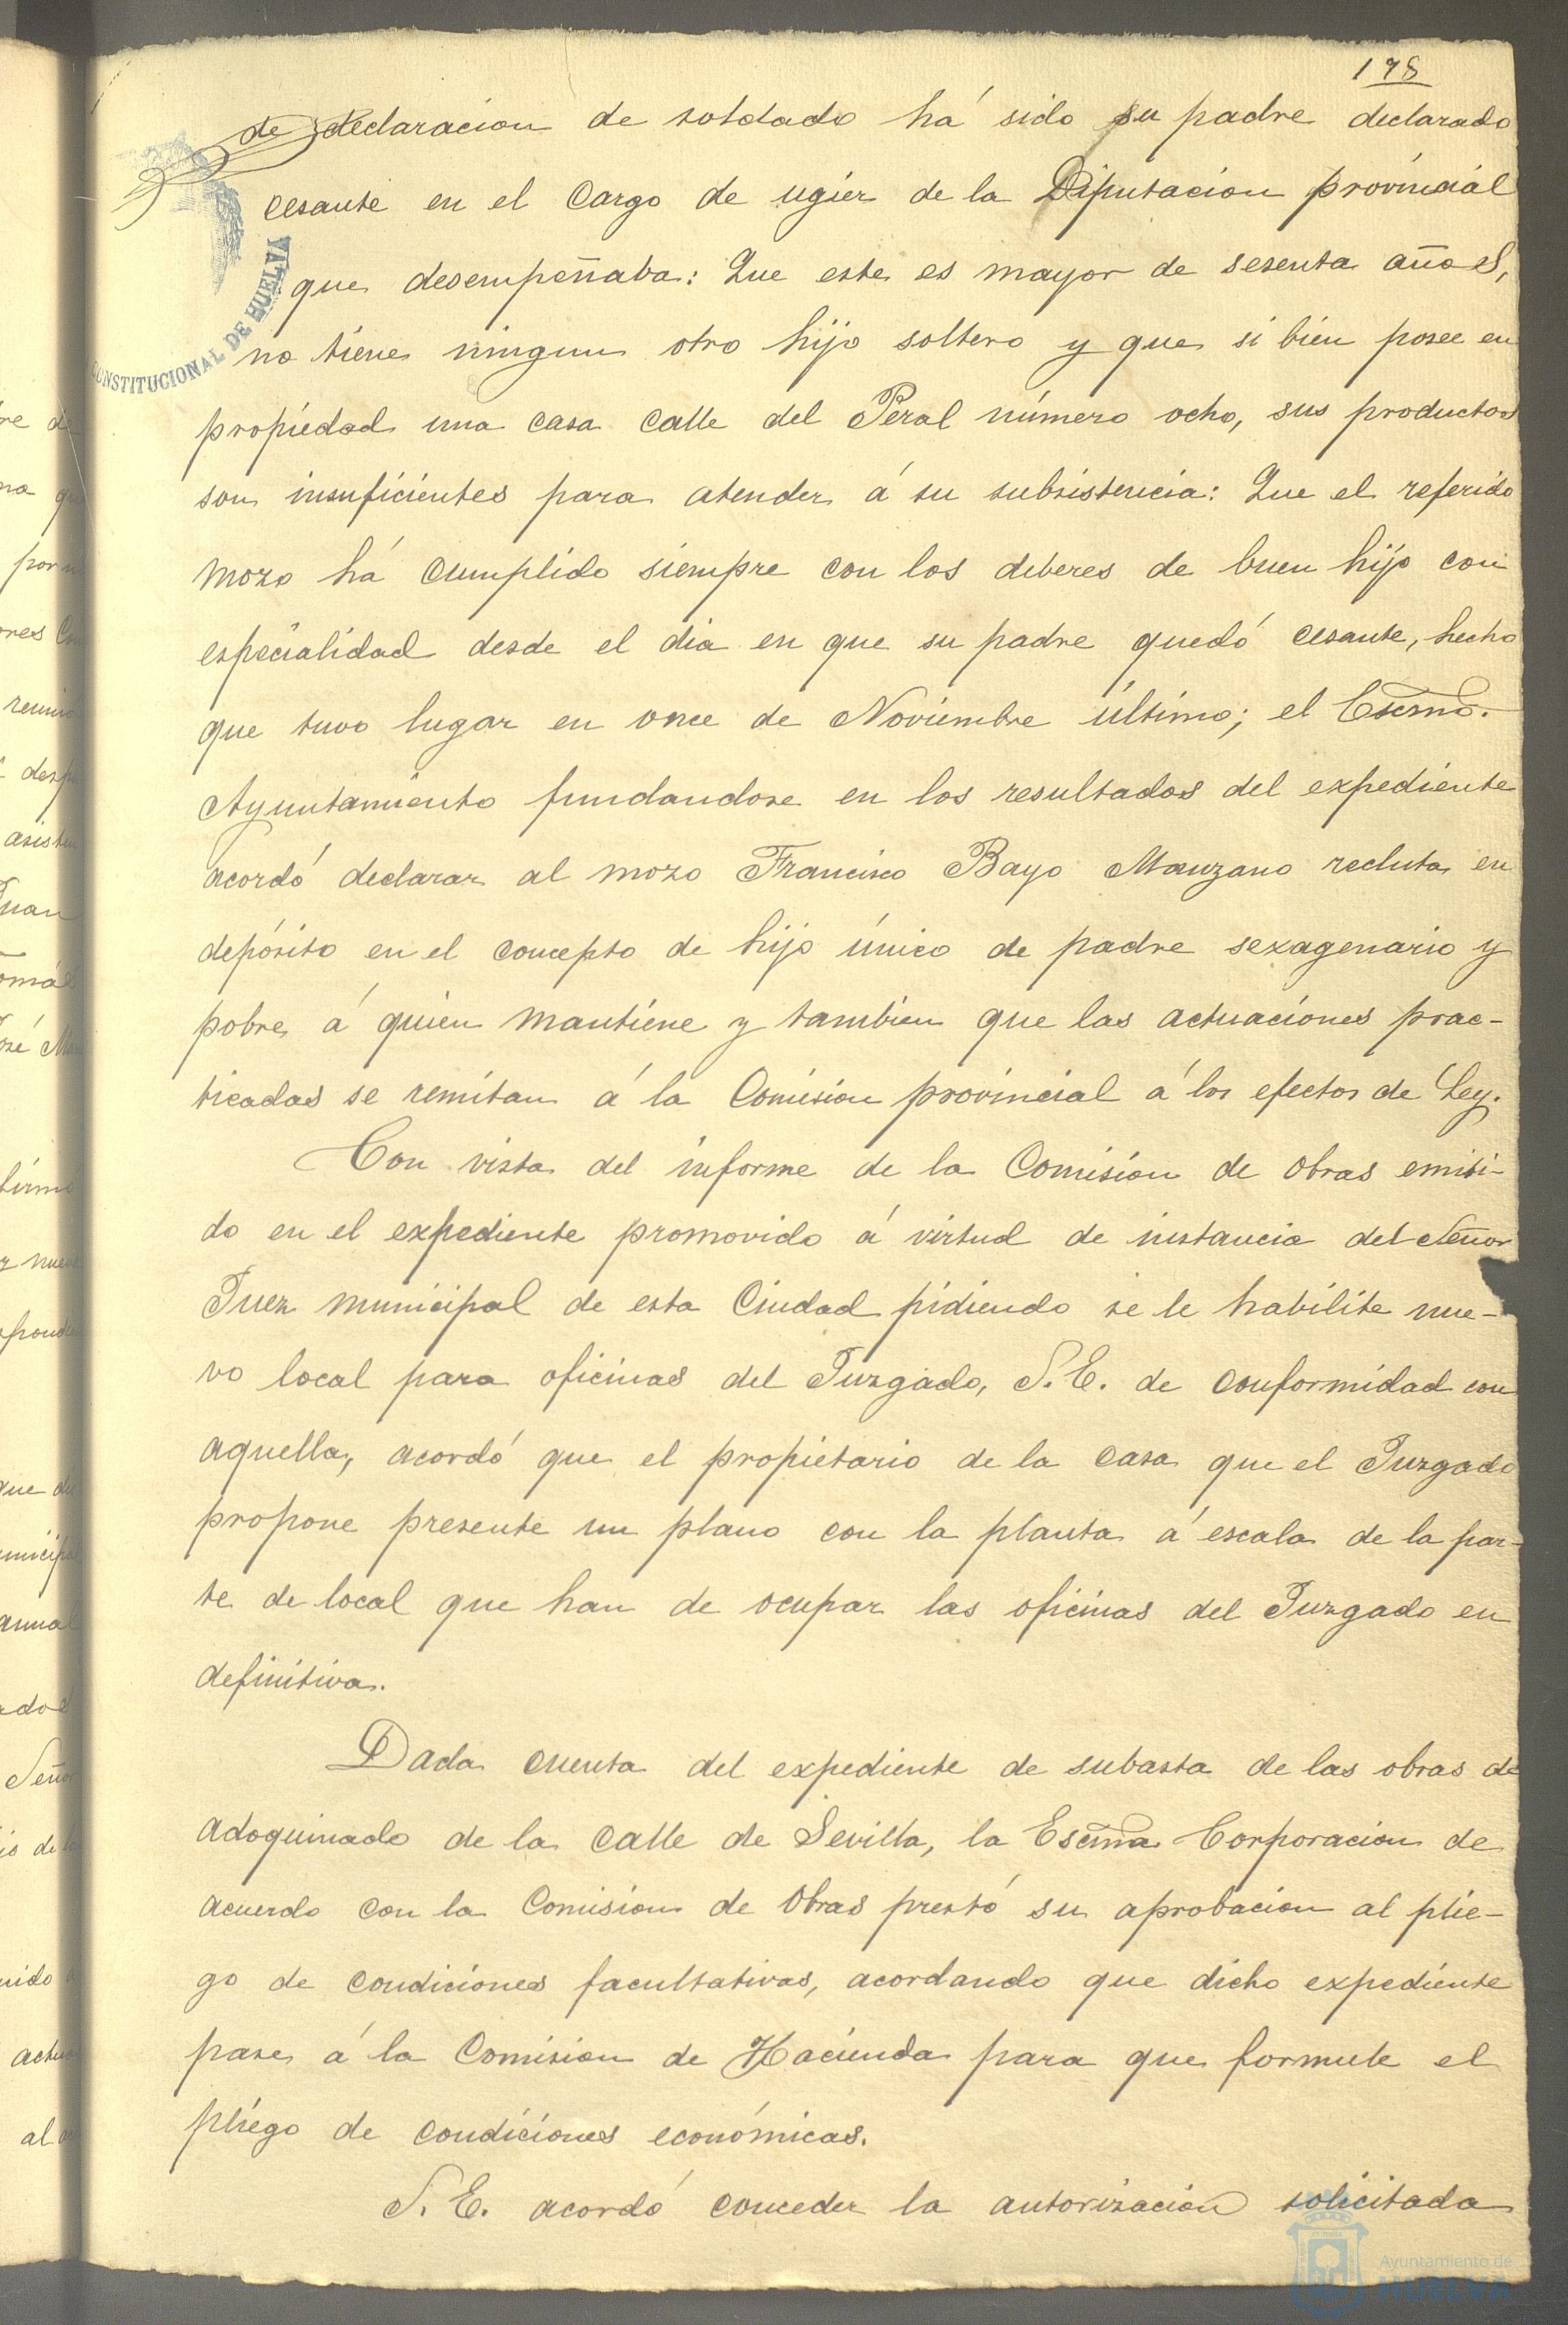 178
de declaracion de soldado há sido su padre declarado
cesante en el cargo de ugier de la Diputacion provincial
que desempeñaba: Que este es mayor de sesenta años,
no tiene ningun otro hijo soltero y que si bien posee en
propiedad una casa calle del Peral número ocho, sus productos
son insuficientes para atender á su subsistencia: Que el referido
mozo há cumplido siempre con los deberes de buen hijo con
especialidad desde el dia en que su padre quedó cesante, hecho
que tuvo lugar en once de Noviembre último; el Escmo.
Ayuntamiento fundandose en los resultados del expediente
acordó declarar al mozo Francisco Bayo Manzano recluta en
depósito en el concepto de hijo único de padre sexagenario y
pobre á quien mantiene y tambien que las actuaciones prac-
ticadas se remitan á la Comision provincial á los efectos de Ley.
Con vista del informe de la Comisión de Obras emiti-
do en el expediente promovido á virtud de instancia del Señor
Juez municipal de esta Ciudad pidiendo se le habilite nue-
vo local para oficinas del Juzgado, S.E. de conformidad con
aquella, acordó que el propietario de la casa que el Juzgado
propone presente un plano con la planta á escala de la par-
te de local que han de ocupar las oficinas del Juzgado en
definitiva.
Dada cuenta del expediente de subasta de las obras de
adoquinado de la calle de Sevilla, la Escma Corporacion de
acuerdo con la Comision de Obras prestó su aprobacion al plie-
go de condiciones facultativas, acordando que dicho expediente
pase á la Comision de Hacienda para que formule el
pliego de condiciones económicas.
S. E. acordó conceder la autorizacion solicitada
CONSTITUCIONAL DE HUELVA
Ayuntamiento de
HUELVA